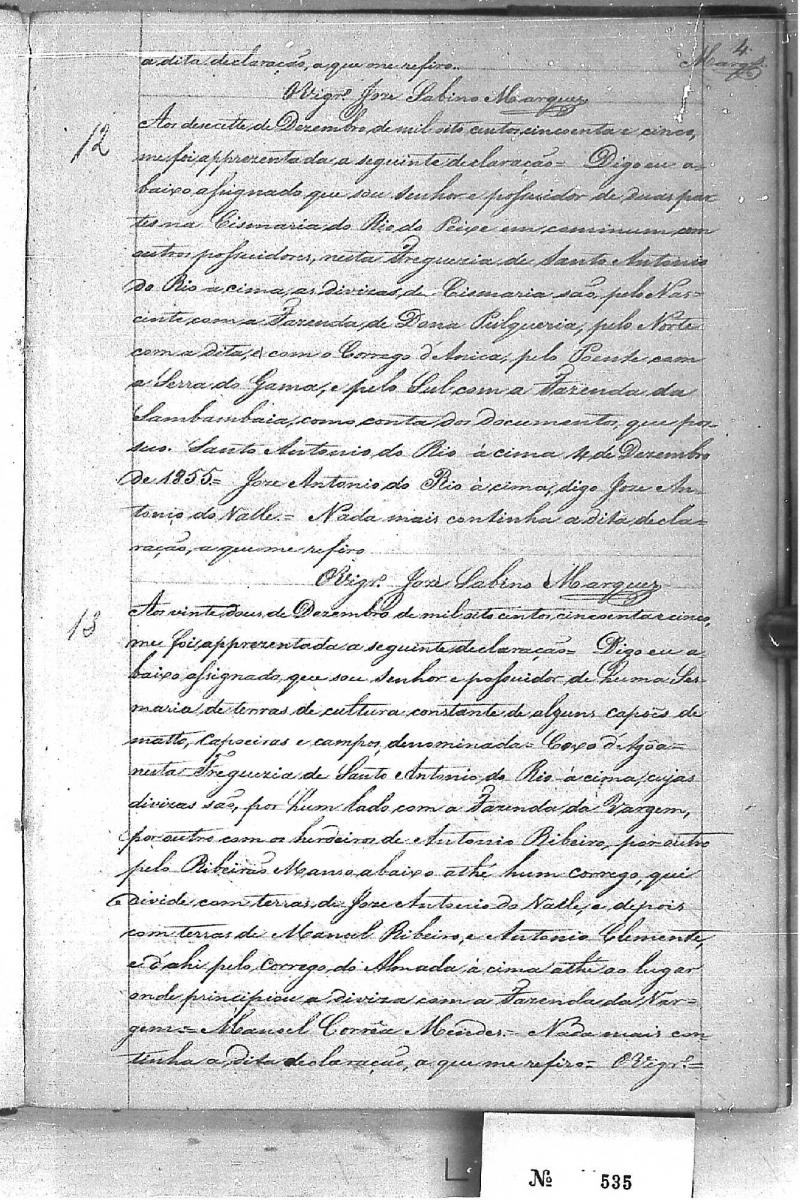 4
Marqz.
a dita declaração, a que me refiro..
O Vigr.º Joze Sabino Marquez
12
Aos desecette de Dezembro de mil oito centos, cincoenta e cinco,
me foi apprezentada a seguinte declaração = Digo eu a-
baixo assignado que sou senhor e possuidor de duas par
tes na Cismaria do Rio do Peixe em commum com
outros possuidores, nesta Freguezia de Santo Antonio
do Rio à cima, as divizas, de Cismaria são, pelo Nas-
cente com a Fazenda, de Dona Pulqueria, pelo Norte
com a dita, e com o Corrego d'Anica, pelo Poente com
a Serra do Gama, e pelo Sul com a Fazenda da
Sambambaia, como conta dos documentos, que pos-
suo. Santo Antonio do Rio à cima 4 de Dezembro
de 1855 = Joze Antonio do Rio à cima, digo Joze An-
tonio do Valle. = Nada mais continha a dita decla-
ração, a que me refiro
O Vigr.º Joze Sabino Marquez
13
Aos vinte dous de Dezembro de mil oito centos, cincoenta e cinco,
me foi apprezentada a seguinte declaração = Digo eu a
baixo assignado, que sou senhor e possuidor de huma Ses-
maria de terras de cultura constante de alguns capões de
matto, capoeiras e campos, denominada = Coxo d'Agôa =
nesta Freguezia de Santo Antonio do Rio à cima, cujas
divizas são, por hum lado com a Fazenda da Vargem,
por outro com os herdeiros de Antonio Ribeiro, por outro
pelo Ribeirão Manso abaixo athé hum corrego, qui
divide com terras de Joze Antonio do Valle, e depois
com terras de Manoel Ribeiro, e Antonio Clemente,
e d'ahi pelo, corrego, do Almada à cima athé ao lugar
onde principiou a diviza com a Fazenda da Var=
gem. = Manoel Corrêa Mendes. = Nada mais con-
tinha a dita declaração, a que me refiro = O Vigr.º =
Nº 535